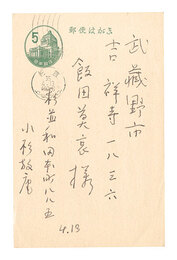 郵便はがき
5
武蔵野市
吉祥寺一八三六
飯田英哀様
杉並和田本町八八五
小杉放庵
4.13